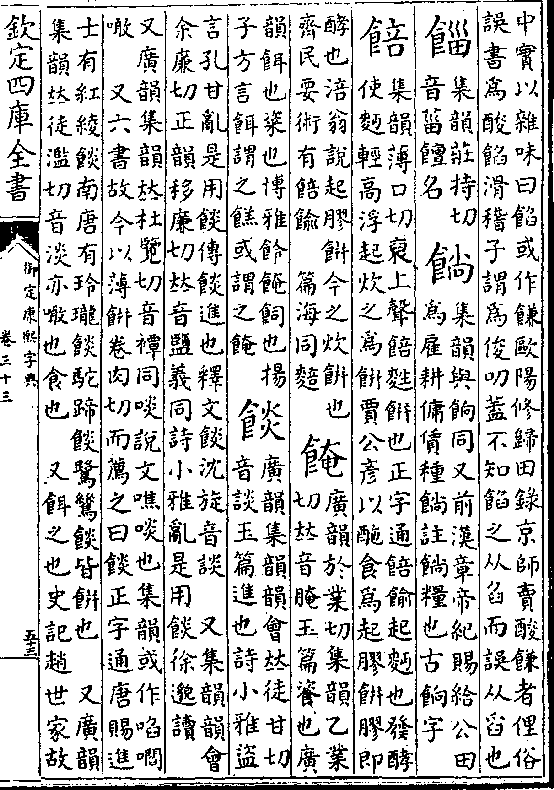 中實以雜味曰餡或作䭑歐陽修歸田錄京師賣酸䭑者俚俗
誤書為酸餡滑稽子謂為俊叨蓋不知餡之从臽而誤从舀也
䭅
集韻莊持切
音菑饘名
𩜋
集韻與餉同又前漢章帝紀賜給公田
為雇耕傭債種𩜋註𩜋糧也古餉字
餢
集韻薄口切裒上聲餢䴺餅也正字通餢飳起麪也發酵
使麪輕高浮起炊之為餅賈公彥以酏食為起膠餅膠即
酵也涪翁說起膠餅今之炊餅也
齊民要術有餢飳 篇海同䴺
䭓
廣韻於業切集韻乙業
切𠀤音腌玉篇餈也廣
韻餌也粢也博雅𩚹䭓飼也揚
子方言餌謂之餻或謂之䭓
餤
廣韻集韻韻會𠀤徒甘切
音談玉篇進也詩小雅盜
言孔甘亂是用餤傳餤進也釋文餤沈旋音談 又集韻韻會
余廉切正韻移廉切𠀤音鹽義同詩小雅亂是用餤徐邈讀
又廣韻集韻𠀤杜覽切音禫同啖說文噍啖也集韻或作啗㘕
噉 又六書故今以薄餅卷肉切而薦之曰餤正字通唐賜進
士有紅綾餤南唐有玲瓏餤駝蹄餤鷺鷥餤皆餅也 又廣韻
集韻𠀤徒濫切音淡亦噉也食也 又餌之也史記趙世家故
欽定四庫全書
御定康熙字典
卷三十三
五三